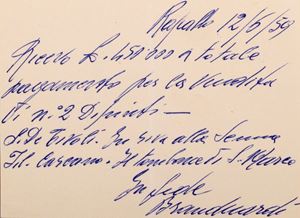 Rapallo 12/6/59
Ricevo £. 450 000 a totale
pagamento per la vendita
di n° 2 Dipinti -
S. De Tivoli. In riva alla Senna
Il Tondone di S. Marco
In fede